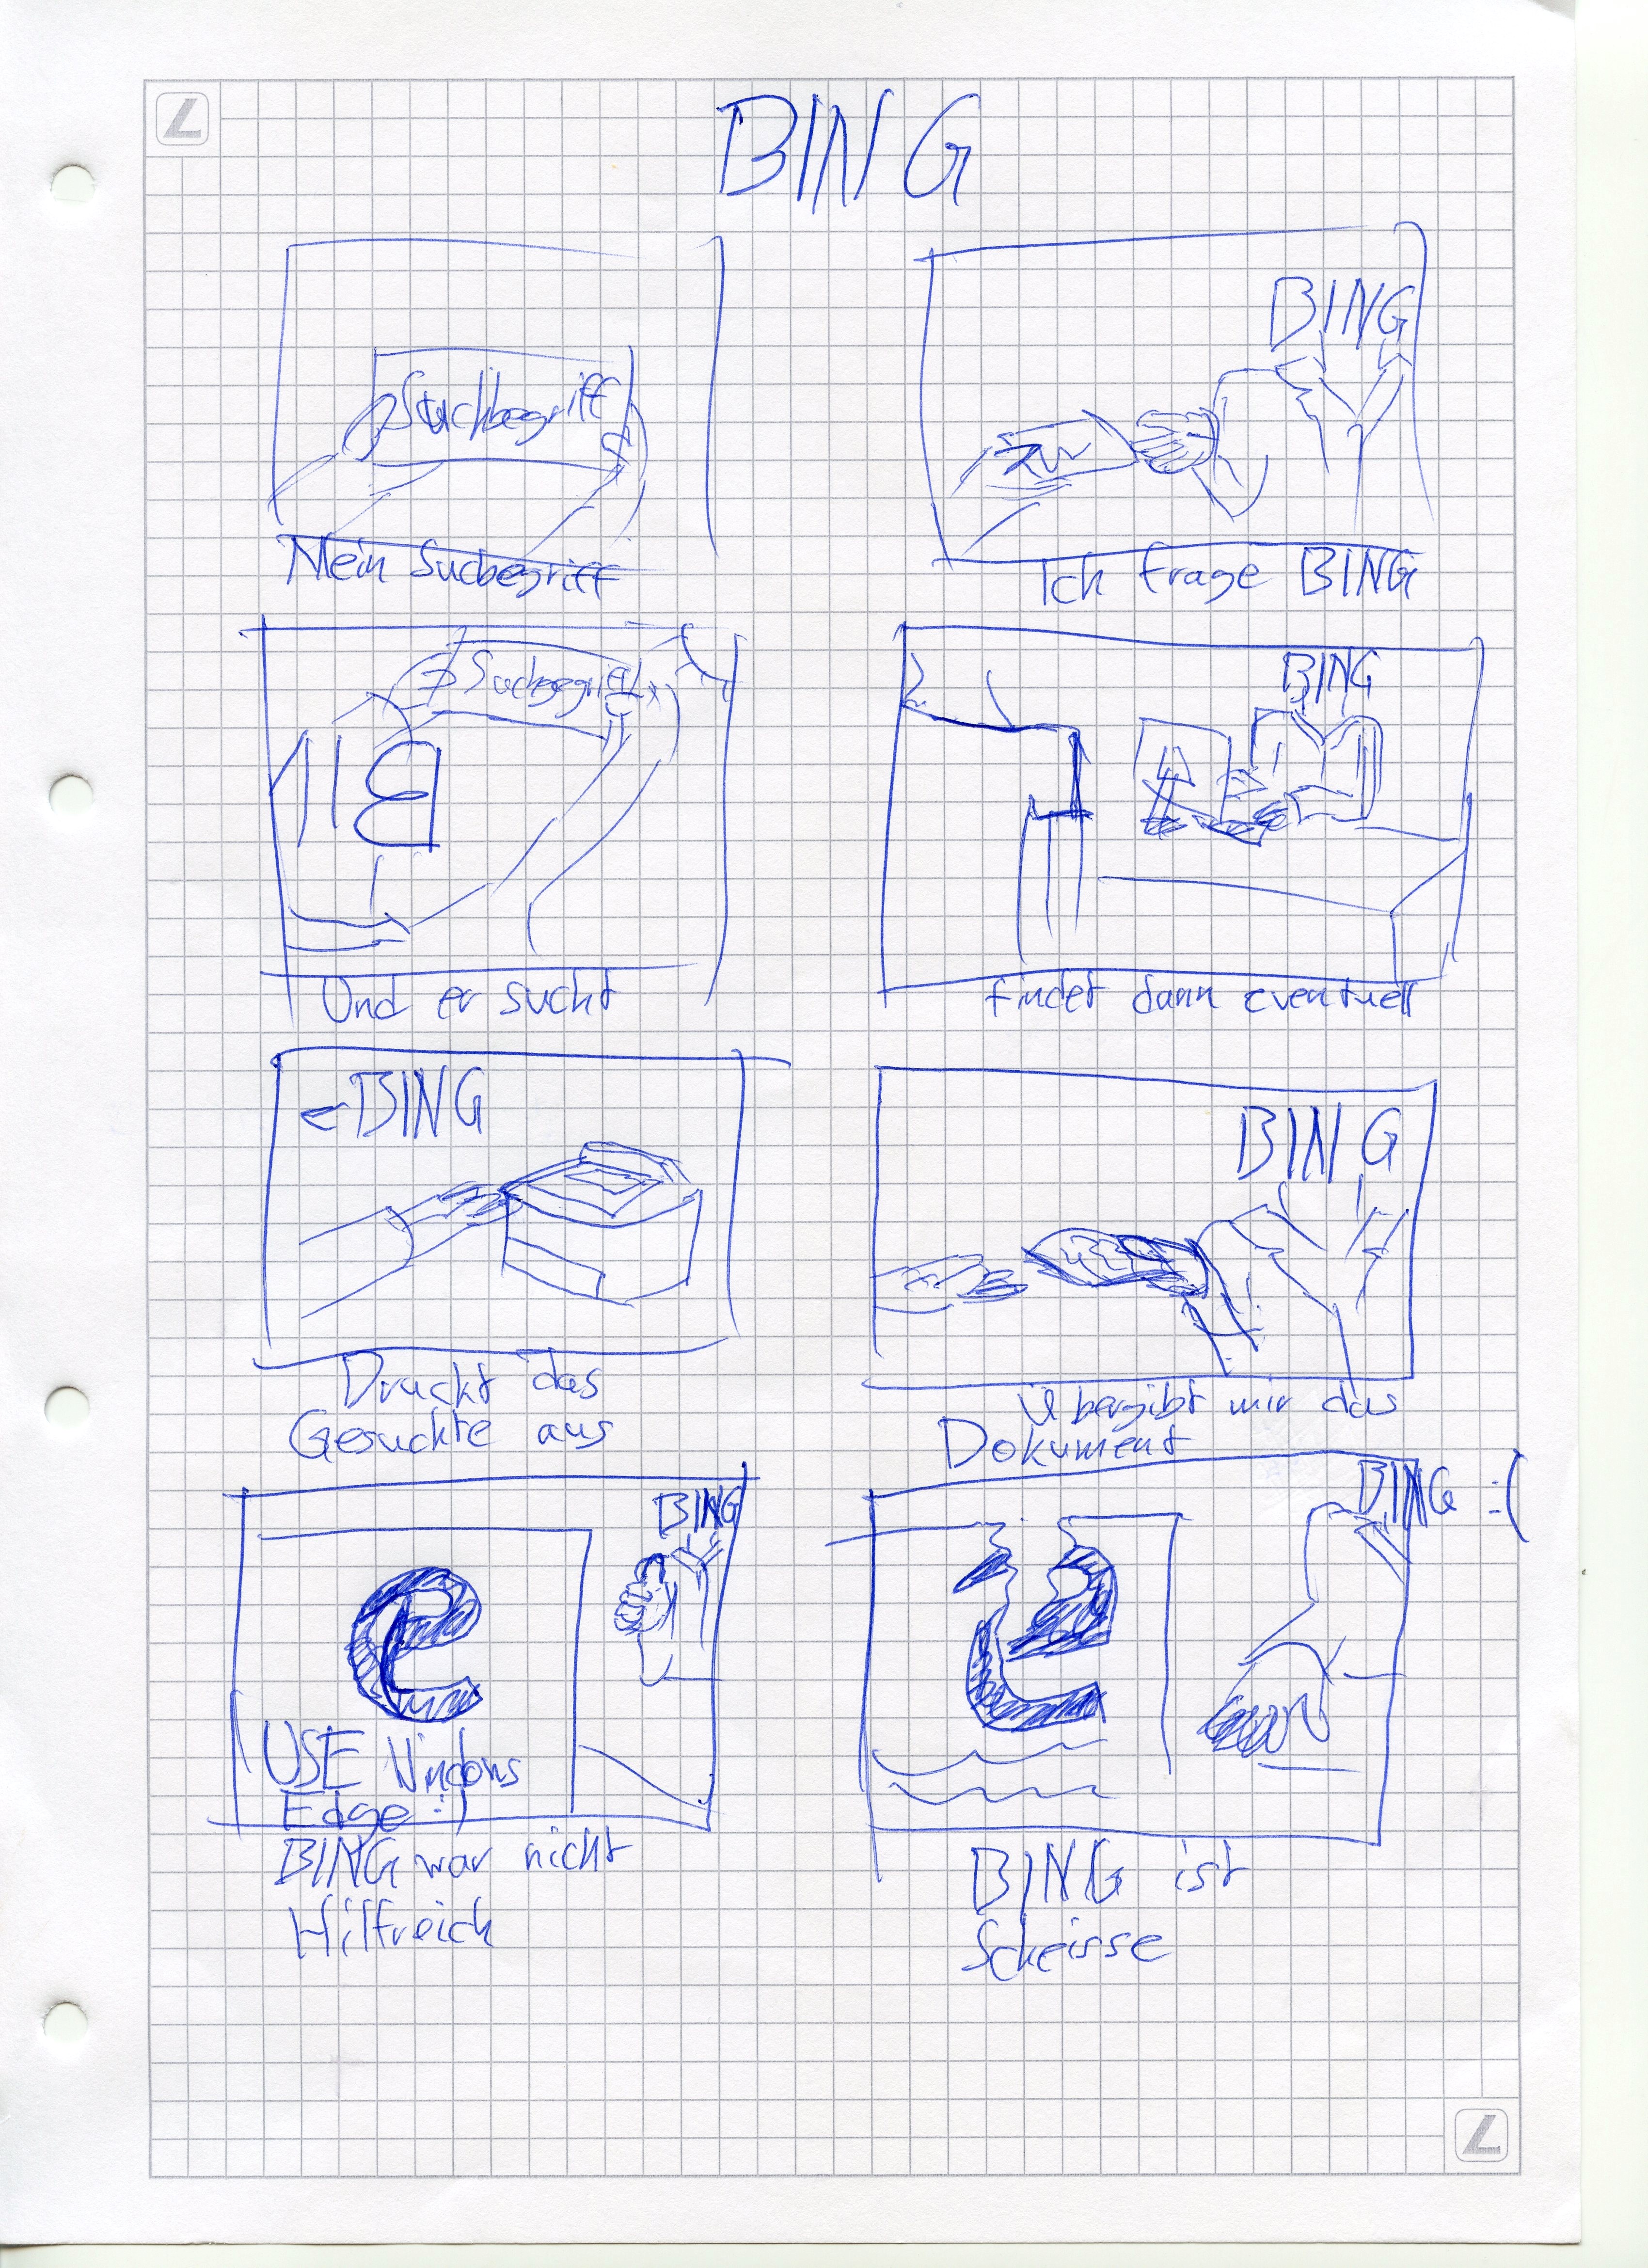 BING
Suchbegriff
Mein Suchbegriff
BING
Ich frage BING
Suchbegriff
BIN
Und er sucht
BING
findet dann eventuell
BING
Druckt das
Gesuchte aus
BING
übergibt mir das
Dokument
BING
e
USE Windows
Edge :)
BING war nicht
Hilfreich
BING :(
e
BING ist
Scheisse